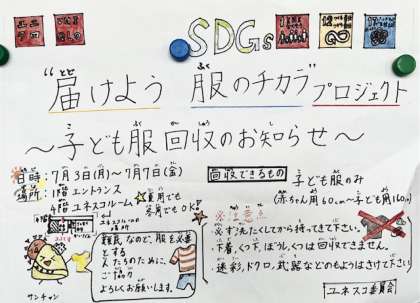 ユニ
クロ
SDGs
“届けよう 服のチカラ”プロジェクト
とど
ふく
～子ども服回収のお知らせ～
日時：7月3日(月)～7月7日(金)
場所：1階エントランス
4階ユネスコルーム
夏用でも
冬用でもOK!
難民などの、服を必要
とする
人たちのために、
ご協力
よろしくお願いします。
サンチャン
回収できるもの
子ども服のみ
(赤ちゃん用60cm～子ども用160cm)
※注意点
必ず洗たくしてから持ってきて下さい。
下着、くつ下、ぼうし、くつは回収できません。
迷彩、ドクロ、武器などのもようはさけて下さい
ユネスコ委員会